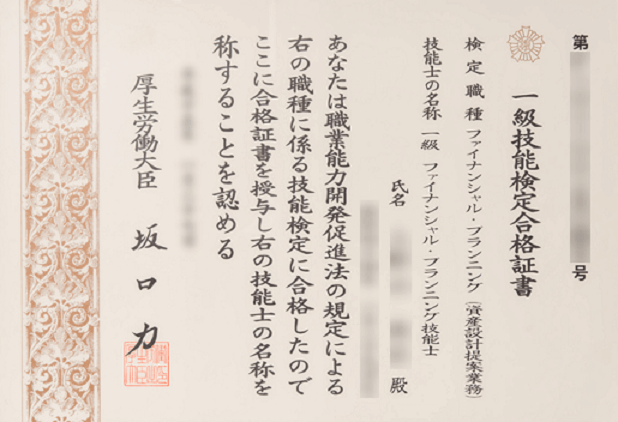 第 号
一級技能検定合格証書
検定職種 ファイナンシャル・プランニング(資産設計提案業務)
技能士の名称 一級 ファイナンシャル・プランニング技能士
氏名 殿
あなたは職業能力開発促進法の規定による
右の職種に係る技能検定に合格したので
ここに合格証書を授与し右の技能士の名称を
称することを認める
厚生労働大臣 坂口力